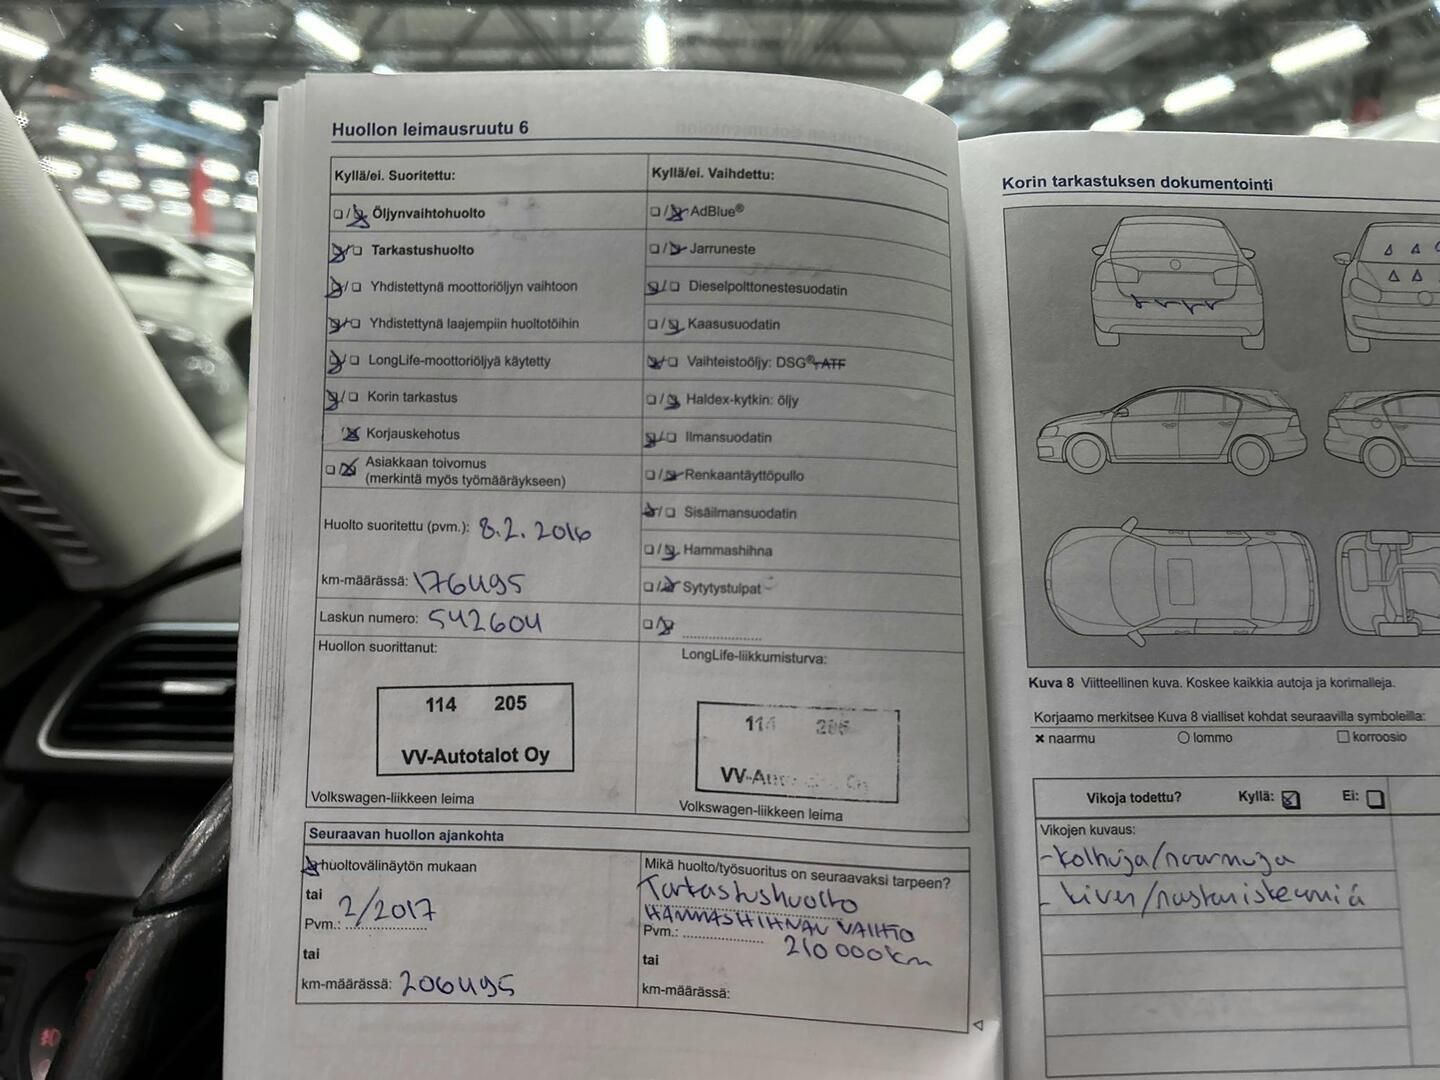 Huollon leimausruutu 6
Kyllä/ei. Suoritettu:
Öljynvaihtohuolto
Tarkastushuolto
Yhdistettynä moottoriöljyn vaihtoon
Yhdistettynä laajempiin huoltotöihin
LongLife-moottoriöljyä käytetty
Korin tarkastus
Korjauskehotus
Asiakkaan toivomus
(merkintä myös työmääräykseen)
Huolto suoritettu (pvm.): 8.2. 2016
km-määrässä: 176495
Laskun numero: 542604
Huollon suorittanut:
114 205
VV-Autotalot Oy
Volkswagen-liikkeen leima
Kyllä/ei. Vaihdettu:
AdBlue®
Jarruneste
Dieselpolttonestesuodatin
Kaasusuodatin
Vaihteistoöljy: DSG®, ATF
Haldex-kytkin: öljy
Ilmansuodatin
Renkaantäyttöpullo
Sisäilmansuodatin
Hammashihna
Sytytystulpat
LongLife-liikkumisturva:
114 205
VV-Autotalot Oy
Volkswagen-liikkeen leima
Seuraavan huollon ajankohta
huoltovälinäytön mukaan
tai
Pvm.: 2/2017
tai
km-määrässä: 206495
Mikä huolto/työsuoritus on seuraavaksi tarpeen?
Tarkastushuolto
HAMMASHIHNAN VAIHTO
Pvm.:
210 000km
tai
km-määrässä:
Korin tarkastuksen dokumentointi
Kuva 8 Viitteellinen kuva. Koskee kaikkia autoja ja korimalleja.
Korjaamo merkitsee Kuva 8 vialliset kohdat seuraavilla symboleilla:
naarmu lommo korroosio
Vikoja todettu? Kyllä: Ei:
Vikojen kuvaus:
-kolhuja/naarmuja
- kiven/nastaniskemiä